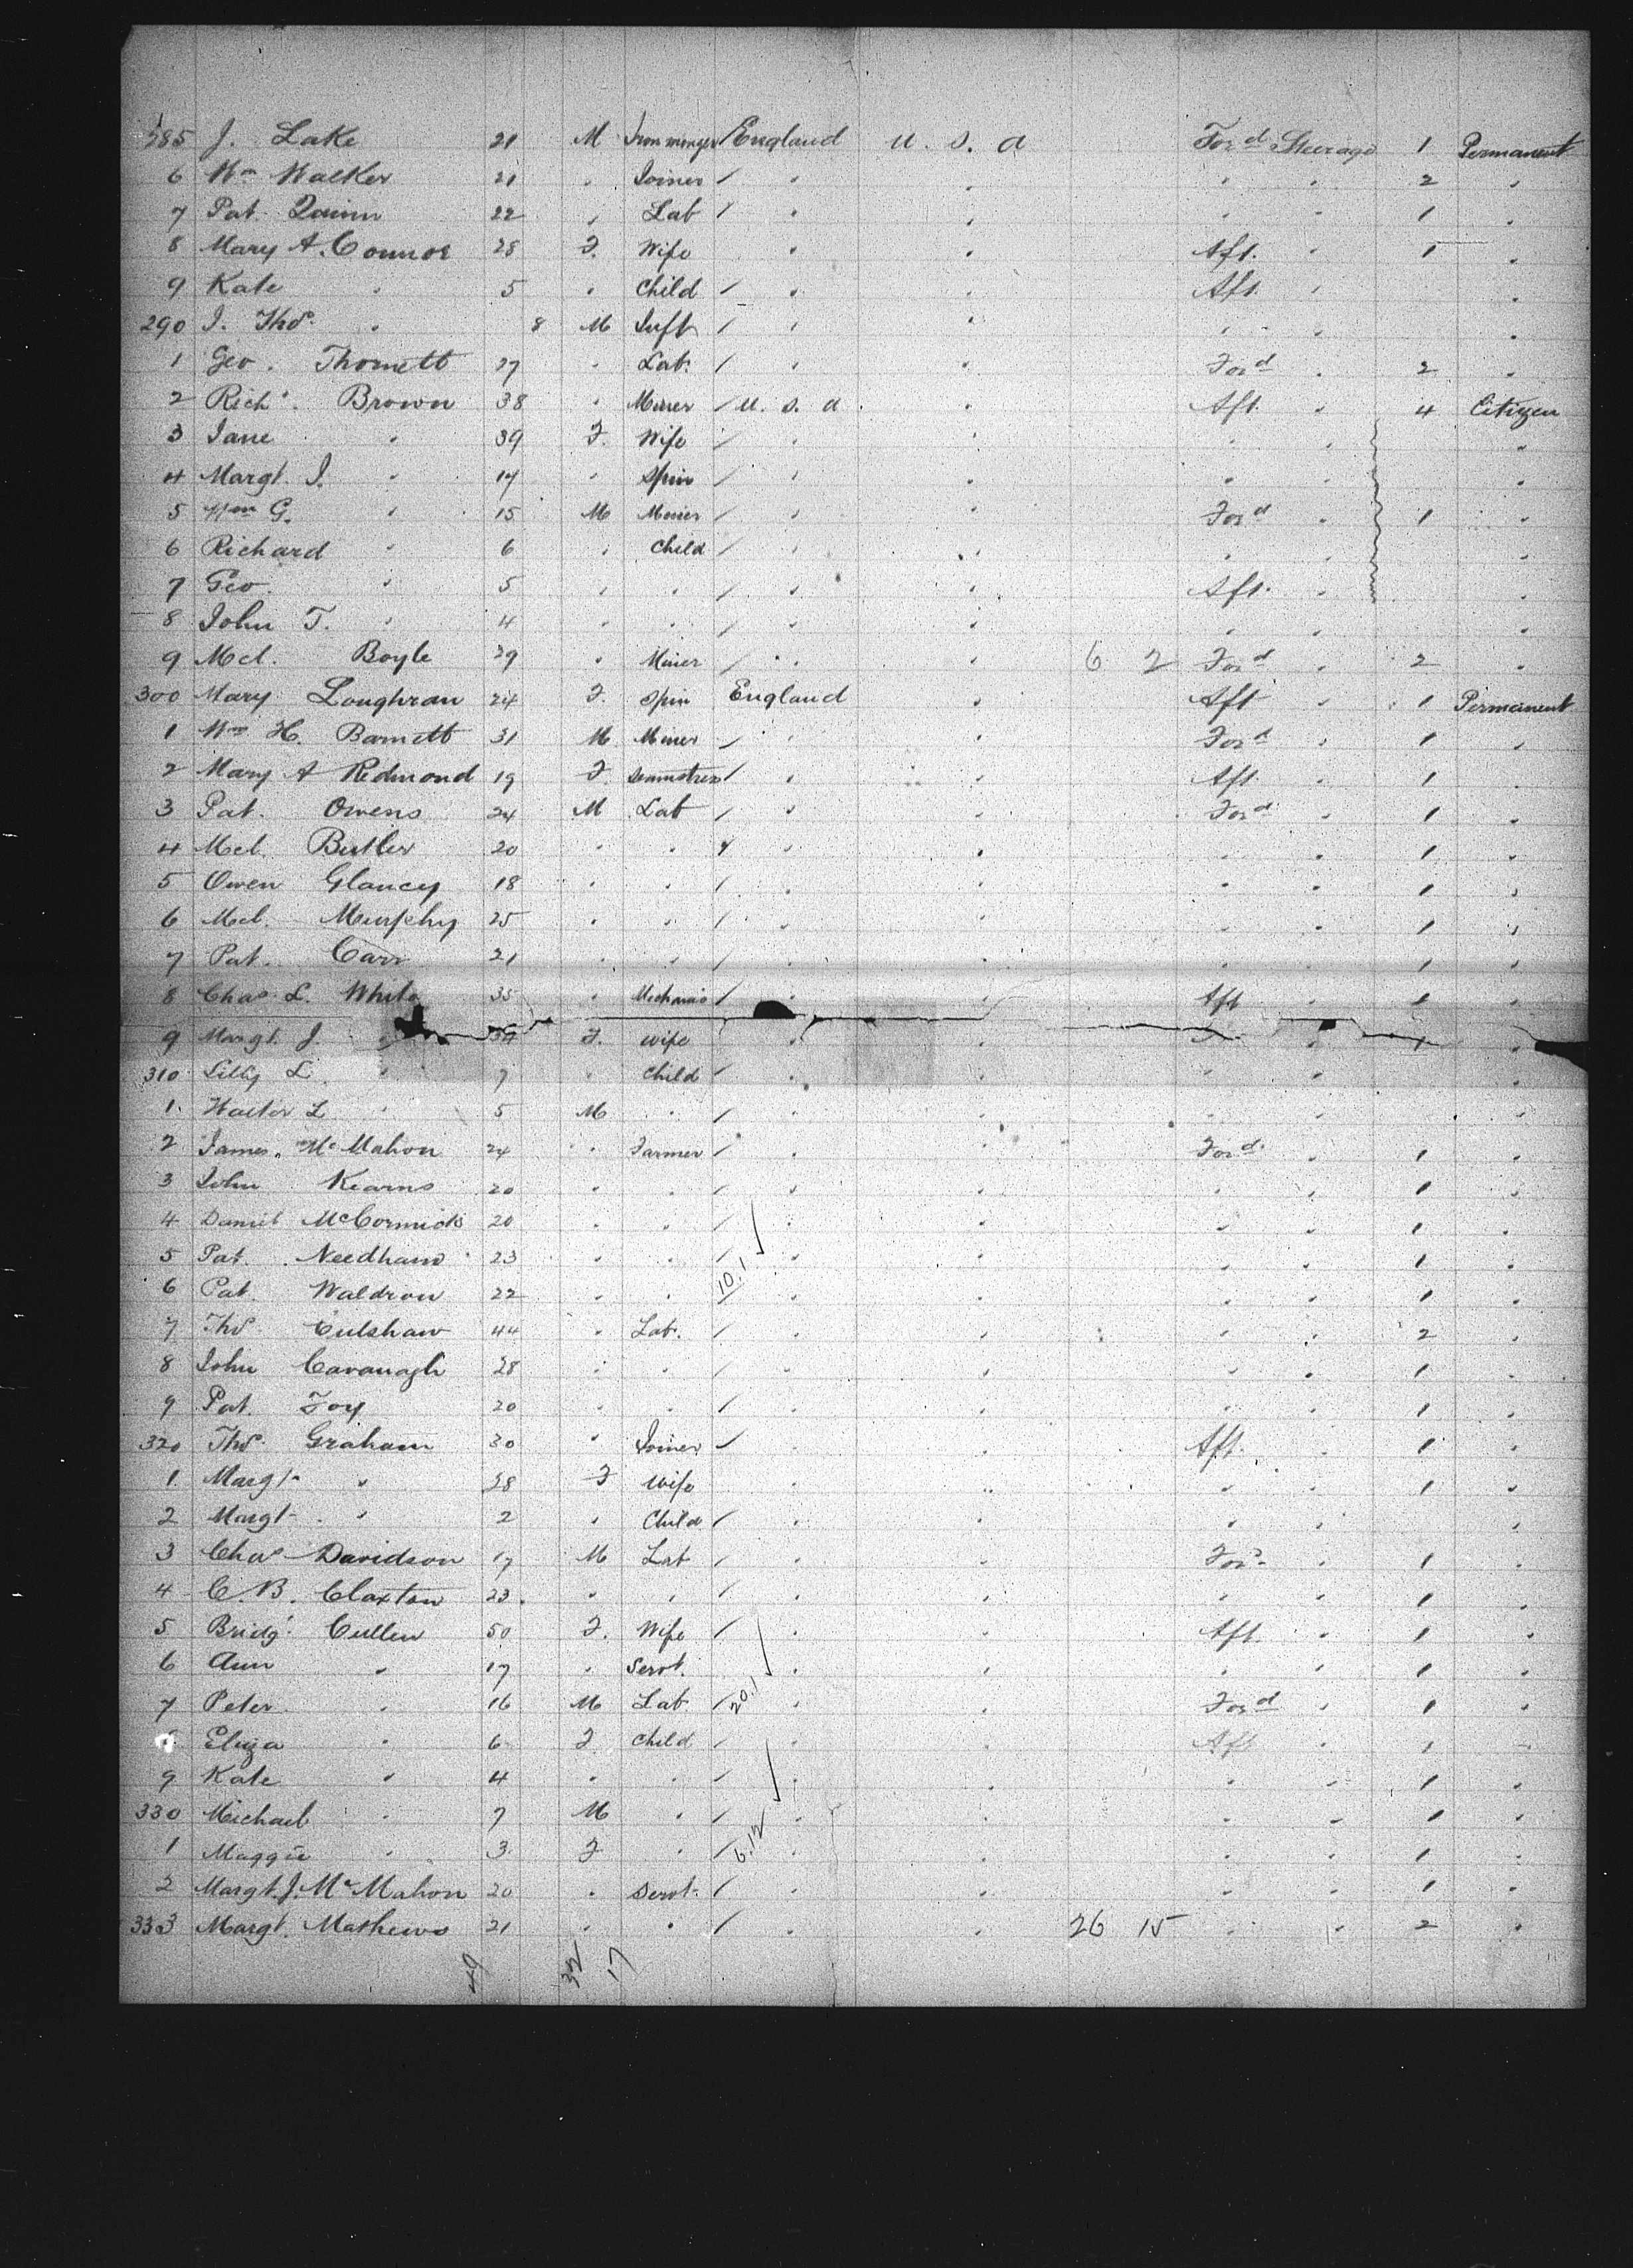 285 J. Lake 21 M Ironmonger England U. S. A Ford Steerage 1 Permanent
6 Wm Walker 21 " Joiner / " " " " 2 "
7 Pat. Quinn 22 " Lab / " " " " 1 "
8 Mary A. Connor 28 F. Wife " " Aft. " 1 "
9 Kate " 5 " Child / " " Aft. " "
290 J. Thos. " 8 M Inft / " " " " "
1 Geo. Thornett 27 " Lab. / " " Ford " 2 "
2 Richd. Brown 38 " Miner / U. S. A. " Aft. " 4 Citizen
3 Jane " 39 F. Wife / " " " " "
4 Margt. J. " 17 " Spin / " " " " "
5 Wm G. " 15 M Miner / " " Ford " 1 "
6 Richard " 6 " Child / " " " " "
7 Geo. " 5 " " / " " Aft. " "
8 John T. " 4 " " / " " " " "
9 Mcl. Boyle 29 " Miner / " " 6 2 Ford " 2 "
300 Mary Loughran 24 F. Spin England " Aft " 1 Permanent
1 Wm H. Barnett 31 M. Miner / " " Ford " 1 "
2 Mary A Redmond 19 F. Seamstress / " " Aft. " 1 "
3 Pat. Owens 24 M Lab / " " Ford " 1 "
4 Mcl. Butler 20 " " / " " " " 1 "
5 Owen Glancey 18 " " / " " " " 1 "
6 Mcl. Murphy 25 " " / " " " " 1 "
7 Pat. Carr 21 " " / " " " " 1 "
8 Chas. L. White 35 " Mechanic / " " Aft " 1 "
9 Margt. J. " 34 F. Wife " " " " 1 "
310 Lilly L. " 7 " Child / " " " " "
1. Walter L " 5 M " / " " " " "
2 James McMahon 24 " Farmer / " " Ford " 1 "
3 John Kearns 20 " " / " " " " 1 "
4 Daniel McCormick 20 " " / " " " " 1 "
5 Pat. Needham 23 " " / 10.1 " " " " 1 "
6 Pat. Waldron 22 " " " " " " 1 "
7 Thos. Culshaw 44 " Lab. / " " " " 2 "
8 John Cavanagh 28 " " / " " " " 1 "
9 Pat. Foy 20 " " / " " " " 1 "
320 Thos. Graham 30 " Joiner / " " Aft. " 1 "
1. Margt " 28 F Wife " " " " 1 "
2 Margt " 2 " Child / " " " " "
3 Chas Davidson 17 M Lab / " " Ford " 1 "
4 C. B. Claxton 23 " " / " " " " 1 "
5 Bridgt. Cullen 50 F. Wife / " " Aft. " 1 "
6 Ann " 17 " Servt. " " " " 1 "
7 Peter " 16 M Lab. / 20.1 " " Ford " 1 "
Eliza " 6 F Child / " " Aft " 1 "
9 Kate " 4 " " / " " " " 1 "
330 Michael " 7 M " / " " " " 1 "
1 Maggie " 3 F " / 6.12 " " " " 1 "
2 Margt. J. McMahon 20 " Servt. / " " " " 1 "
333 Margt. Mathews 21 " " / " " 26 15 " " 2 "
49 32 17